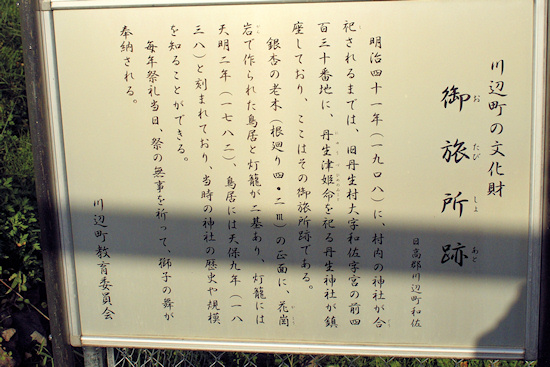 川辺町の文化財
御旅所跡
お たび しょ あと
日高郡川辺町和佐
明治四十一年(一九〇八)に、村内の神社が合
祀されるまでは、旧丹生村大字和佐字宮の前四
百三十番地に、丹生津姫命を祀る丹生神社が鎮
座しており、ここはその御旅所跡である。
銀杏の老木(根廻り四・二m)の正面に、花崗
岩で作られた鳥居と灯籠が二基あり、灯籠には
天明二年(一七八二)、鳥居には天保九年(一八
三八)と刻まれており、当時の神社の歴史や規模
を知ることができる。
毎年祭礼当日、祭の無事を祈って、獅子の舞が
奉納される。
川辺町教育委員会